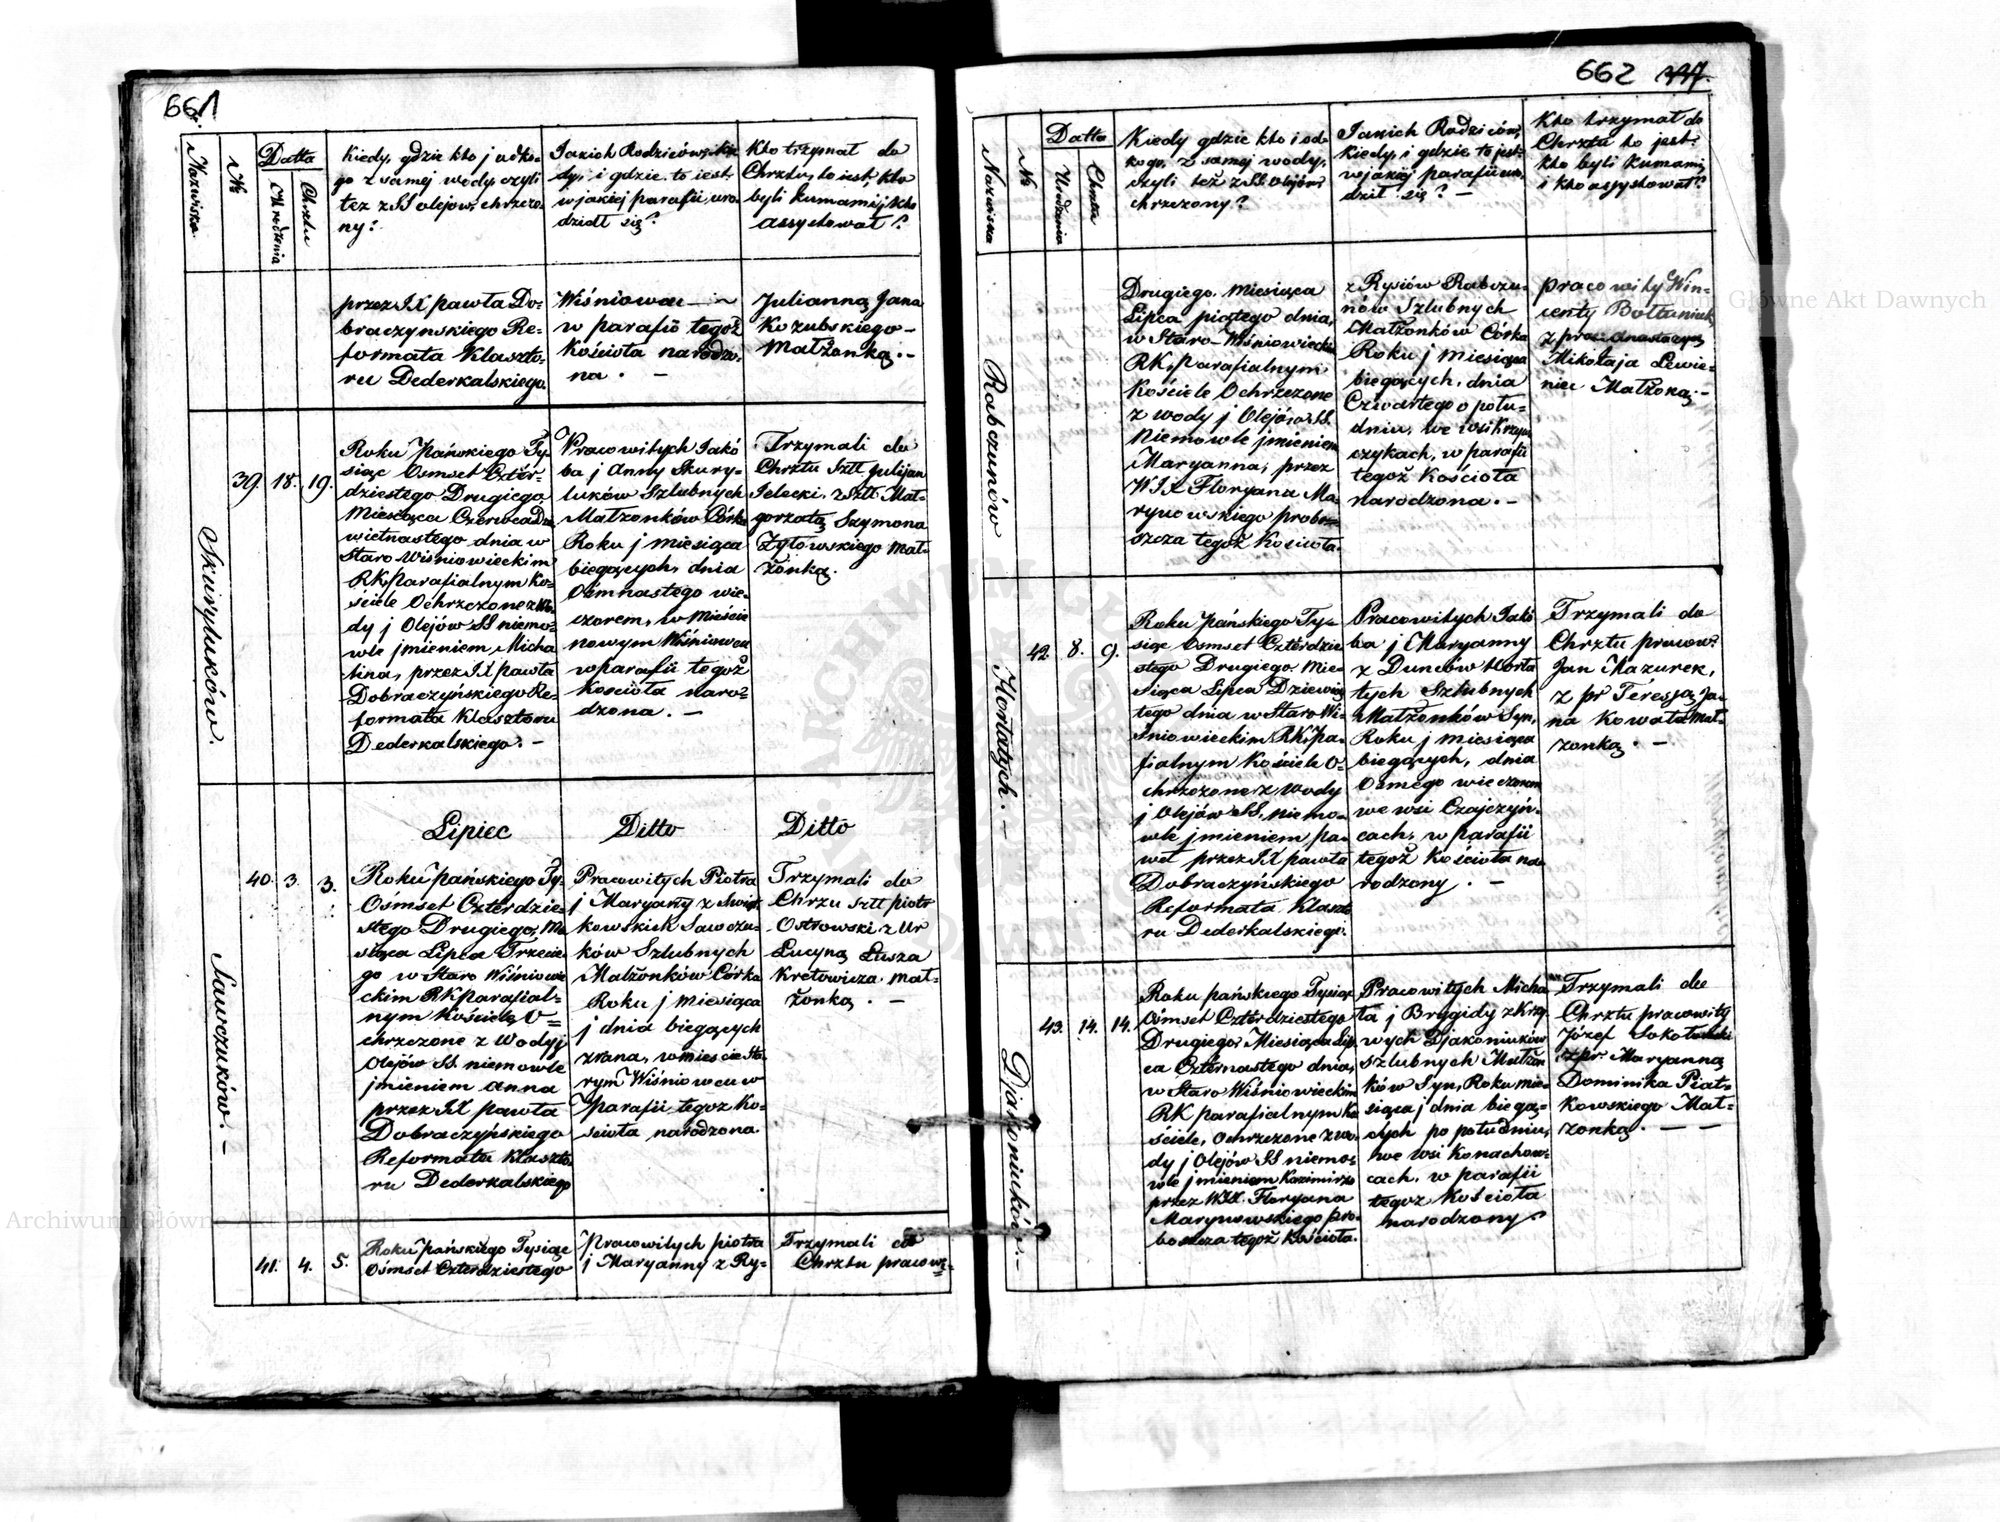 661
Nazwiska.
№
Datta
Urodzenia
Chrztu
Kiedy, gdzie kto j odko-
go z samej wody, czyli
tez z SS olejów, chrzczo-
ny?
Jakich Rodziców, kie-
dy, i gdzie to iest
w jakiej parafii, uro-
dzidł się?
Kto trzymał do
Chrztu, to iest, kto
byli kumami j kto
assystował?
przez JX pawła Do-
braczynskiego Re-
formata Klaszto-
ru Dederkalskiego
Wiśniowcu
w parafii tegoż
Kościoła narodzo-
na. —
Julianną Jana
Kozubskiego –
Małżonką. –
Skuryluków.
39. 18. 19.
Roku Pańskiego Ty-
siąc Osmset Czter-
dziestego Drugiego
Miesiąca Czerwca Dzie
wietnastego dnia w
Staro Wiśniowieckim
RK parafialnym Ko-
ściele Ochrzczone z Wo-
dy j Olejów SS niemo-
wle jmieniem Micha
lina, przez JX pawła
Dobraczyńskiego Re-
formata Klasztoru
Dederkalskiego. –
Pracowitych Jakó
ba j Anny Skury-
luków Szlubnych
Małzonków Córka
Roku j miesiąca
biegących, dnia
Osmnastego wie-
czorem, w Mieście
nowym Wiśniowcu
w parafii tegoż
Kościoła naro-
dzona. –
Trzymali do
Chrztu Szlt Julijan
Jelecki, z Szlt Mał-
gorzatą Szymona
Żytowskiego Mał-
żonką.
Lipiec
Ditto
Ditto
Sawczuków. –
40. 3. 3.
Roku pańskiego Ty-
Ośmset Czterdzie-
stego Drugiego, Mie
siąca Lipca Trzecie-
go w Staro Wiśniowie
ckim RK parafial-
nym Kościele O-
chrzczone z Wody j
Olejów SS. niemowle
jmieniem Anna
przez JX pawła
Dobraczyńskiego
Reformata Klaszto-
ru Dederkalskiego
Pracowitych Piotra
j Maryany z
kowskich Sawczu-
ków Szlubnych
Małzonków Córka
Roku j Miesiąca
j dnia biegących
zrana, w mieście Sta-
rym Wiśniowcu w
parafii tegoz Ko-
ścioła narodzona.
Trzymali do
Chrzu Szlt piotr
Ostrowski z Ur
Lucyną Łusza
Kretowicza Mał-
żonką. –
41. 4. 5.
Roku pańskiego Tysiąc
Ośmset Czterdziestego
Pracowitych piotra
j Maryanny z Ry-
Trzymali do
Chrztu pracow:
662
Nazwiska
№
Datta
Urodzenia
Chrztu
Kiedy gdzie kto i odo
kogo, z samej wody,
czyli też z SS. olejów,
chrzczony?
Jakich Rodziców,
Kiedy, i gdzie, to jest
w jakiej parafii uro-
dził się? –
Kto trzymał do
Chrztu to jest
kto byli kumami,
i kto assystował?
Rabczunów
Drugiego, Miesiąca
Lipca piątego dnia,
w Staro-Wiśniowieckim
RK, parafialnym
Kościele Ochrzczone
z wody j Olejów SS.
Niemowle jmieniem
Maryanna, przez
WJX Floryana Ma-
rynowskiego probo-
szcza tegoż Kościoła.
z Rysiów Rabczu-
nów Szlubnych
Małżonków Córka
Roku j miesiąca
biegących, dnia
Czwartego o połu-
dniu, we wsi Krzyw
czykach, w parafii
tegoż Kościoła
narodzona. –
pracowity Win-
centy Bołtuniuk,
z prac: Anastazyą
Mikołaja Lewie-
niec Małżoką. –
Hortatych. –
42. 8. 9.
Roku pańskiego Ty-
siąc Ośmset Czterdzie
stego Drugiego Mie-
siąca Lipca Dziewią
tego dnia w Staro Wi-
śniowieckim RK, pa-
fialnym Kościele O-
chrzczone z Wody
j Olejów SS, niemo-
wle jmieniem pa-
weł przez JX pawła
Dobraczyńskiego
Reformata Klaszto
ru Dederkalskiego.
Pracowitych Jakó
ba j Maryanny
z Duńców Horta
tych Szlubnych
Małżonków Syn,
Roku j miesiąca
biegących, dnia
Osmego wieczorem
we wsi Czajczyń-
cach, w parafii
tegoż Kościoła na-
rodzony. –
Trzymali do
Chrztu pracow:
Jan Mazurek,
z pr Teresją Ja-
na Kowala Mał-
zonką. –
Djakoniuków. –
43. 14. 14.
Roku pańskiego Tysiąc
Ośmset Czterdziestego
Drugiego Miesiąca Lip-
ca Czternastego dnia,
w Staro Wiśniowieckim
RK parafialnym Ko
ściele, ochrzczone z wo-
dy j Olejów SS niemo-
wle jmieniem Kazimirz
przez WJX. Floryana
Marynowskiego pro-
boszcza tegoż Kościoła.
Pracowitych Micha
ła j Brygidy z Krzy-
wych Djakoniuków
Szlubnych Małżon
ków Syn, Roku mie-
siąca j dnia biegą-
cych po południu,
we wsi Konachow-
cach, w parafii
tegoz Kościoła
narodzony.
Trzymali do
Chrztu pracowity
Józef Sokołowski
z pr: Maryanną
Dominika Piat-
kowskiego Mał-
zonką. – –
Archiwum Główne Akt Dawnych
Archiwum Główne Akt Dawnych